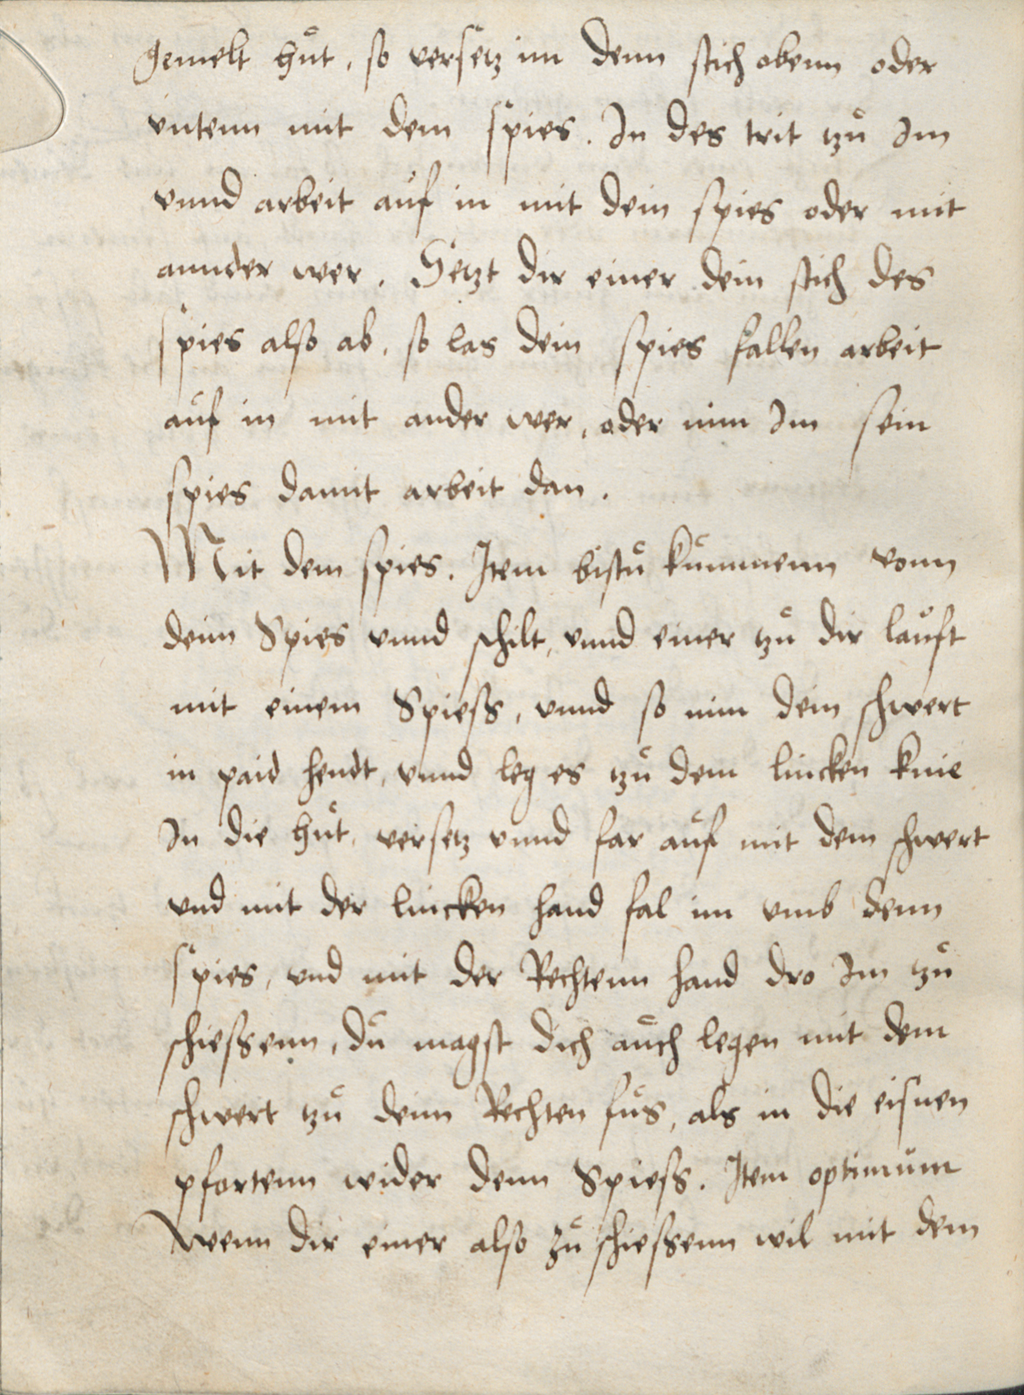 gemelt hůt, so versetz im denn stich obenn oder
vntenn mit dem spies. In des trit tzů Im
vnnd arbeit auf in mit dein spies oder mit
annder wer. Setzt dir einer dein stich des
spies also ab, so las dein spies fallen arbeit
auf in mit ander wer, oder nim Im sein
spies damit arbeit dan.
Mit dem spies. Item bistů kůmmenn vonn
deim Spies vnnd schilt, vnnd einer tzů dir laůft
mit einem Spiess, vnnd so nim dein schwert
in paid hendt, vnnd leg es tzů dem lincken knie
In die hůt, versetz vnnd far auf mit dem schwert
vnd mit der lincken hand fal im vmb denn
spies, vnd mit der Rechtenn hand dro Im tzů
schiessenn, dů magst dich aůch legen mit dem
schwert tzů deim Rechten fůs, als in die eisnen
pfortenn wider denn Spiess. Item optimum
Wenn dir einer also zů schiessenn wil mit dem